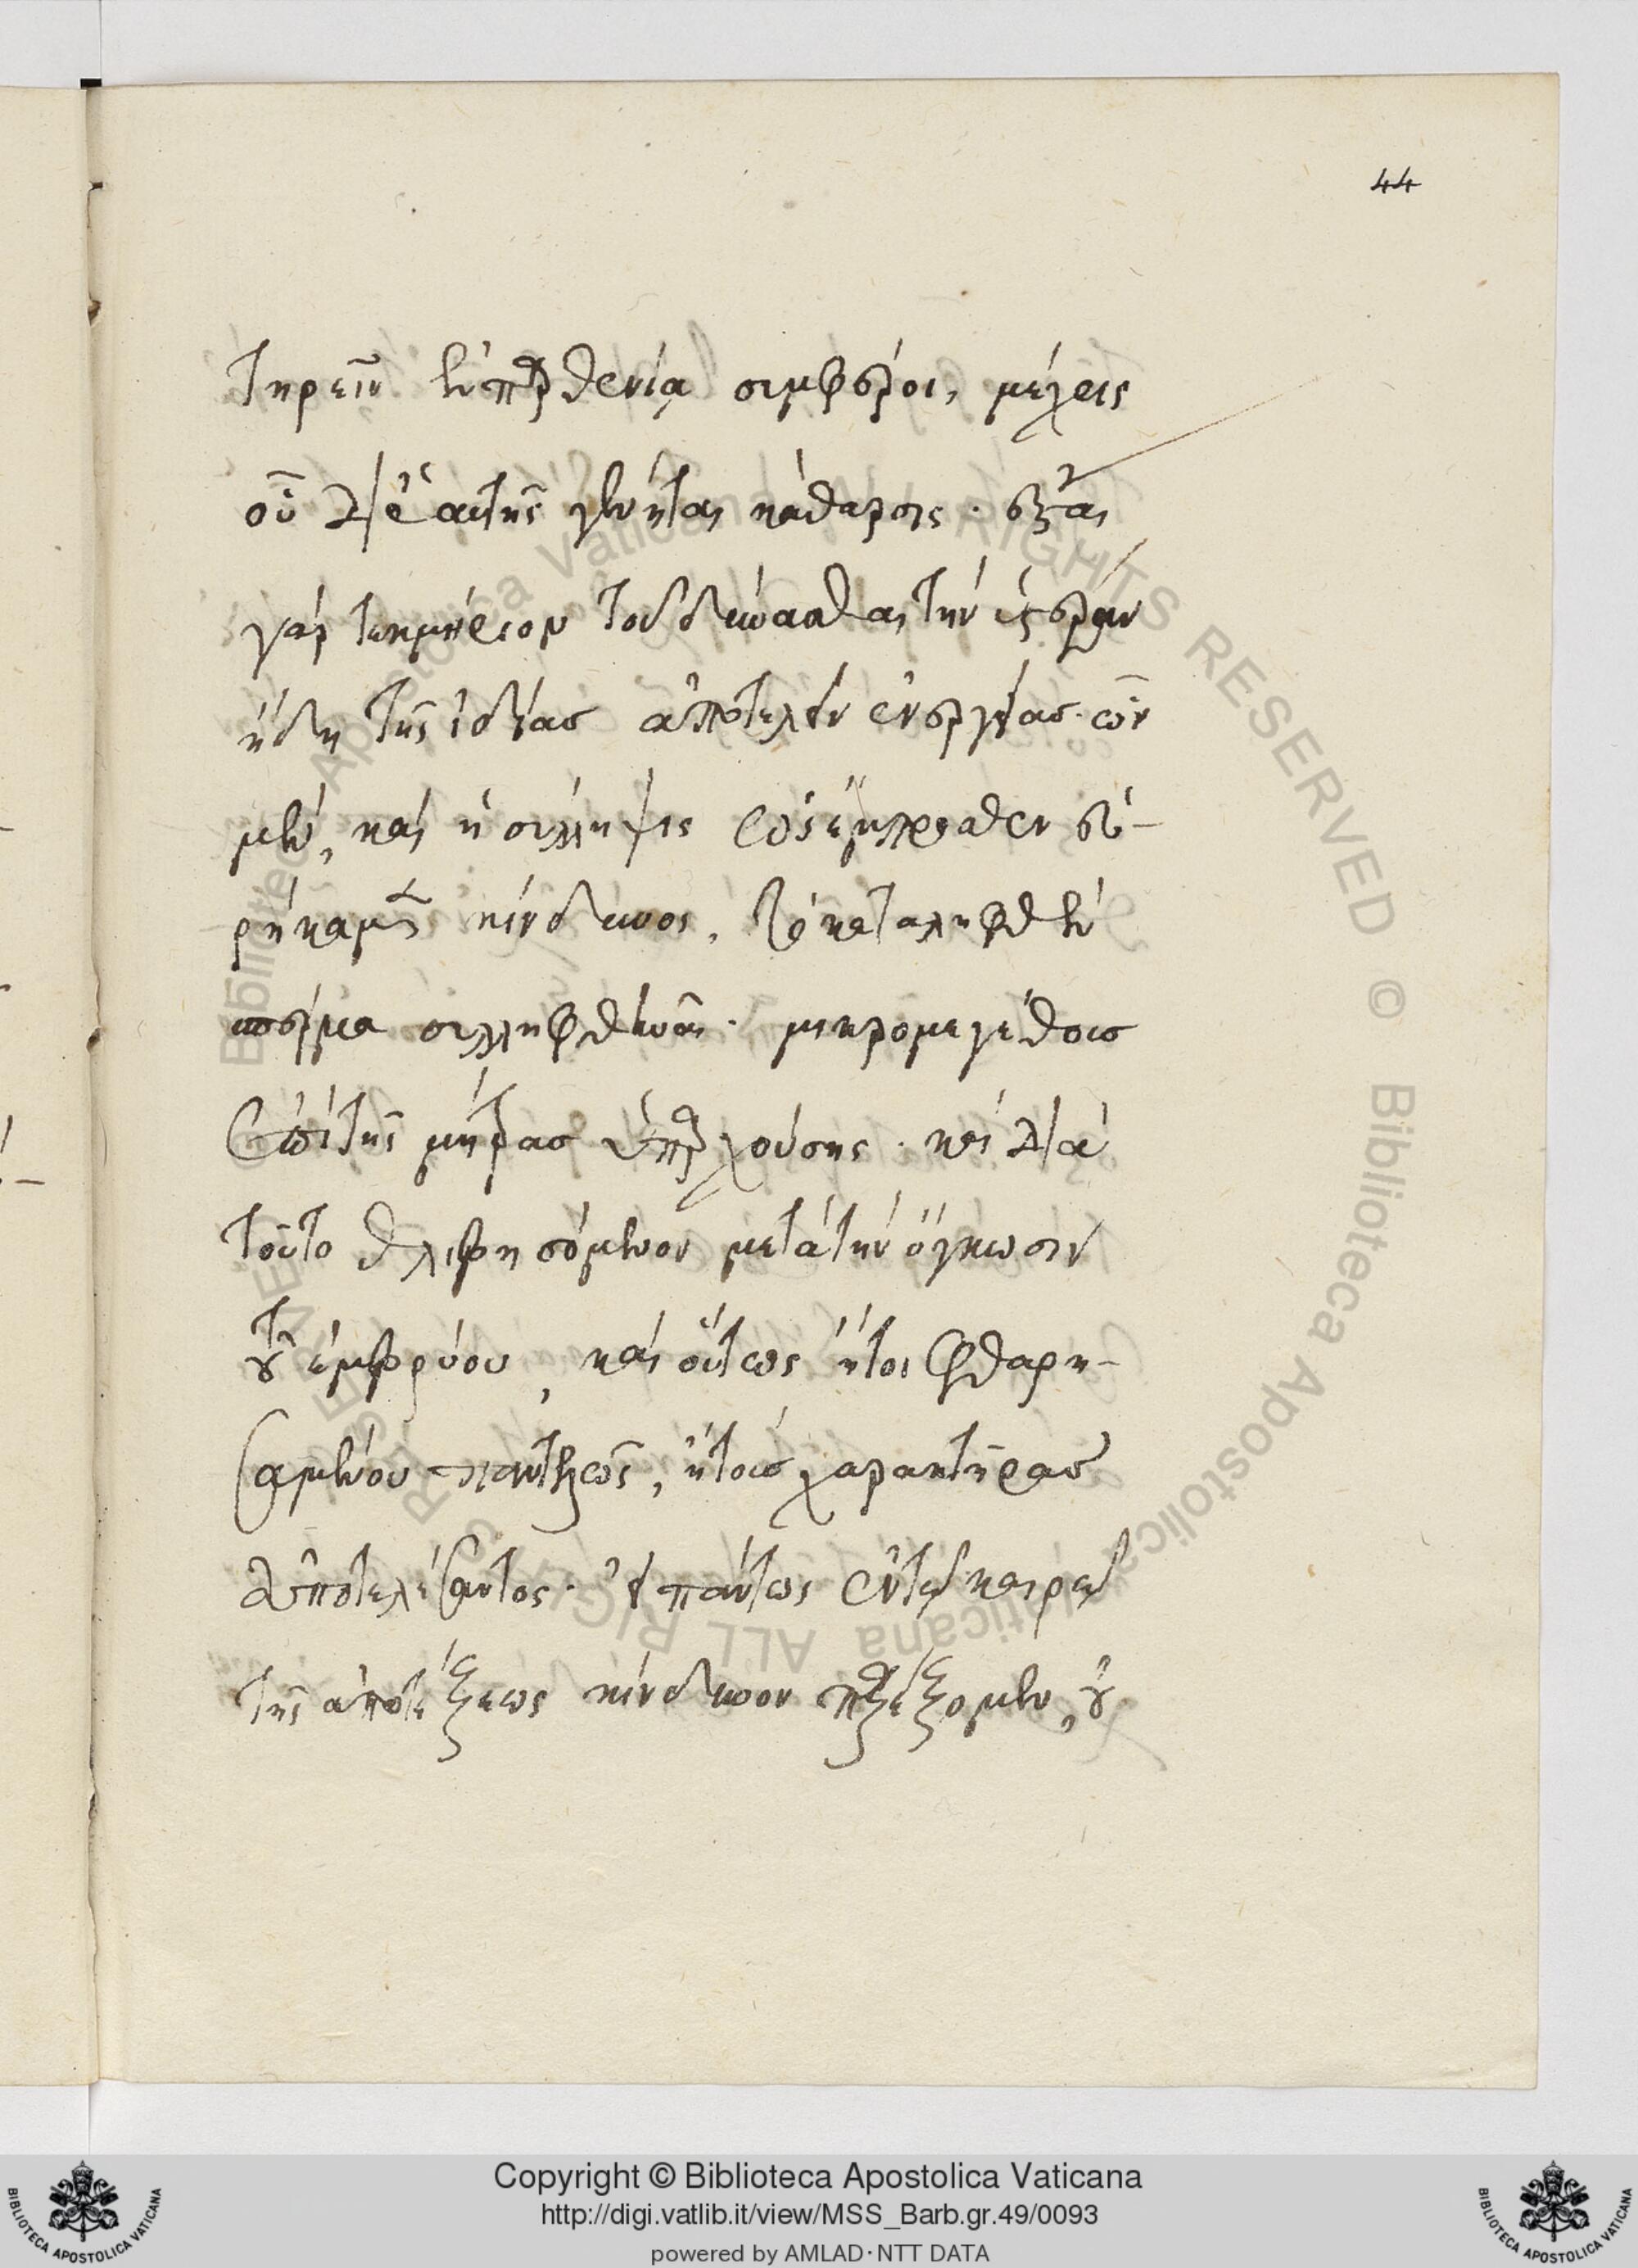 44
τηρεῖν ἐν παρθενία συμφέρει, μέχρις
οὗ δι' ἑαυτῆς γένηται κάθαρσις. ἔσται
γὰρ τεκμήριον τοῦ δύνασθαι τὴν ὑστέραν
ἤδη τῆς ἰδίας ἀποτελεῖν ἐνεργείας. ὧν
μὲν, καὶ ἡ σύλληψις ὡς ἔμπροσθεν εὑ-
ρήκαμεν κίνδυνος, τὸ καταληφθὲν
σπέρμα συλληφθῆναι. μικρομεγέθους
ἔτι τῆς μήτρας ὑπαρχούσης. καὶ διὰ
τοῦτο θλιβησόμενον μετὰ τὴν ὄγκωσιν
τοῦ ἐμβρύου, καὶ οὕτως ἤτοι φθαρη-
σαμένου παντελῶς, ἢ τοὺς χαρακτῆρας
ἀποτελέσαντος. ἢ πάντως ἐν τῷ καιρῷ
τῆς ἀποτέξεως κίνδυνον παρέξομεν, οὐ
Copyright © Biblioteca Apostolica Vaticana
http://digi.vatlib.it/view/MSS_Barb.gr.49/0093
powered by AMLAD·NTT DATA
BIBLIOTECA APOSTOLICA VATICANA
BIBLIOTECA APOSTOLICA VATICANA
Biblioteca Apostolica Vaticana ALL RIGHTS RESERVED ©
Biblioteca Apostolica Vaticana ALL RIGHTS RESERVED ©